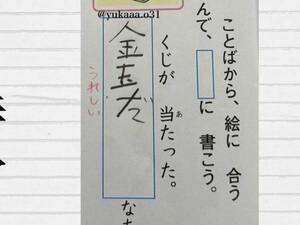 @yukaaa.o31
ことばから、絵に 合う
んで、□に 書こう。
くじが 当たった。
あ
金玉だ
うれしい